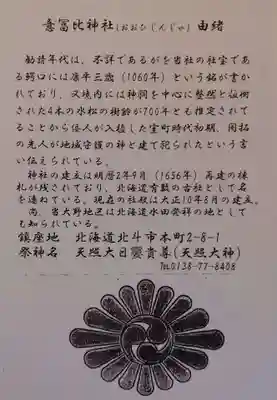 意冨比神社(おおひじんじゃ)由緒
勧請年代は、不詳であるがを当社の社宝であ
る鰐口には康平三歳(1060年)という銘が書か
れており、又境内には神祠を中心に整然と
された4本の水松の樹齢が700年とも推定されて
ることから倭人が入植した室町時代初期、開拓
の先人が地域守護の神と建て祀られたという言
い伝えられている。
神社の建立は明暦2年9月(1656年)再建の棟
札が残されており、北海道有数の古社として名
を連ねている。現在の社殿は大正10年8月の建立。
尚、当大野地区は北海道水田発祥の地として
も知られている。
鎮座地 北海道北斗市本町2-8-1
祭神名 天照大日孁貴尊(天照大神)
TEL0138-77-8408